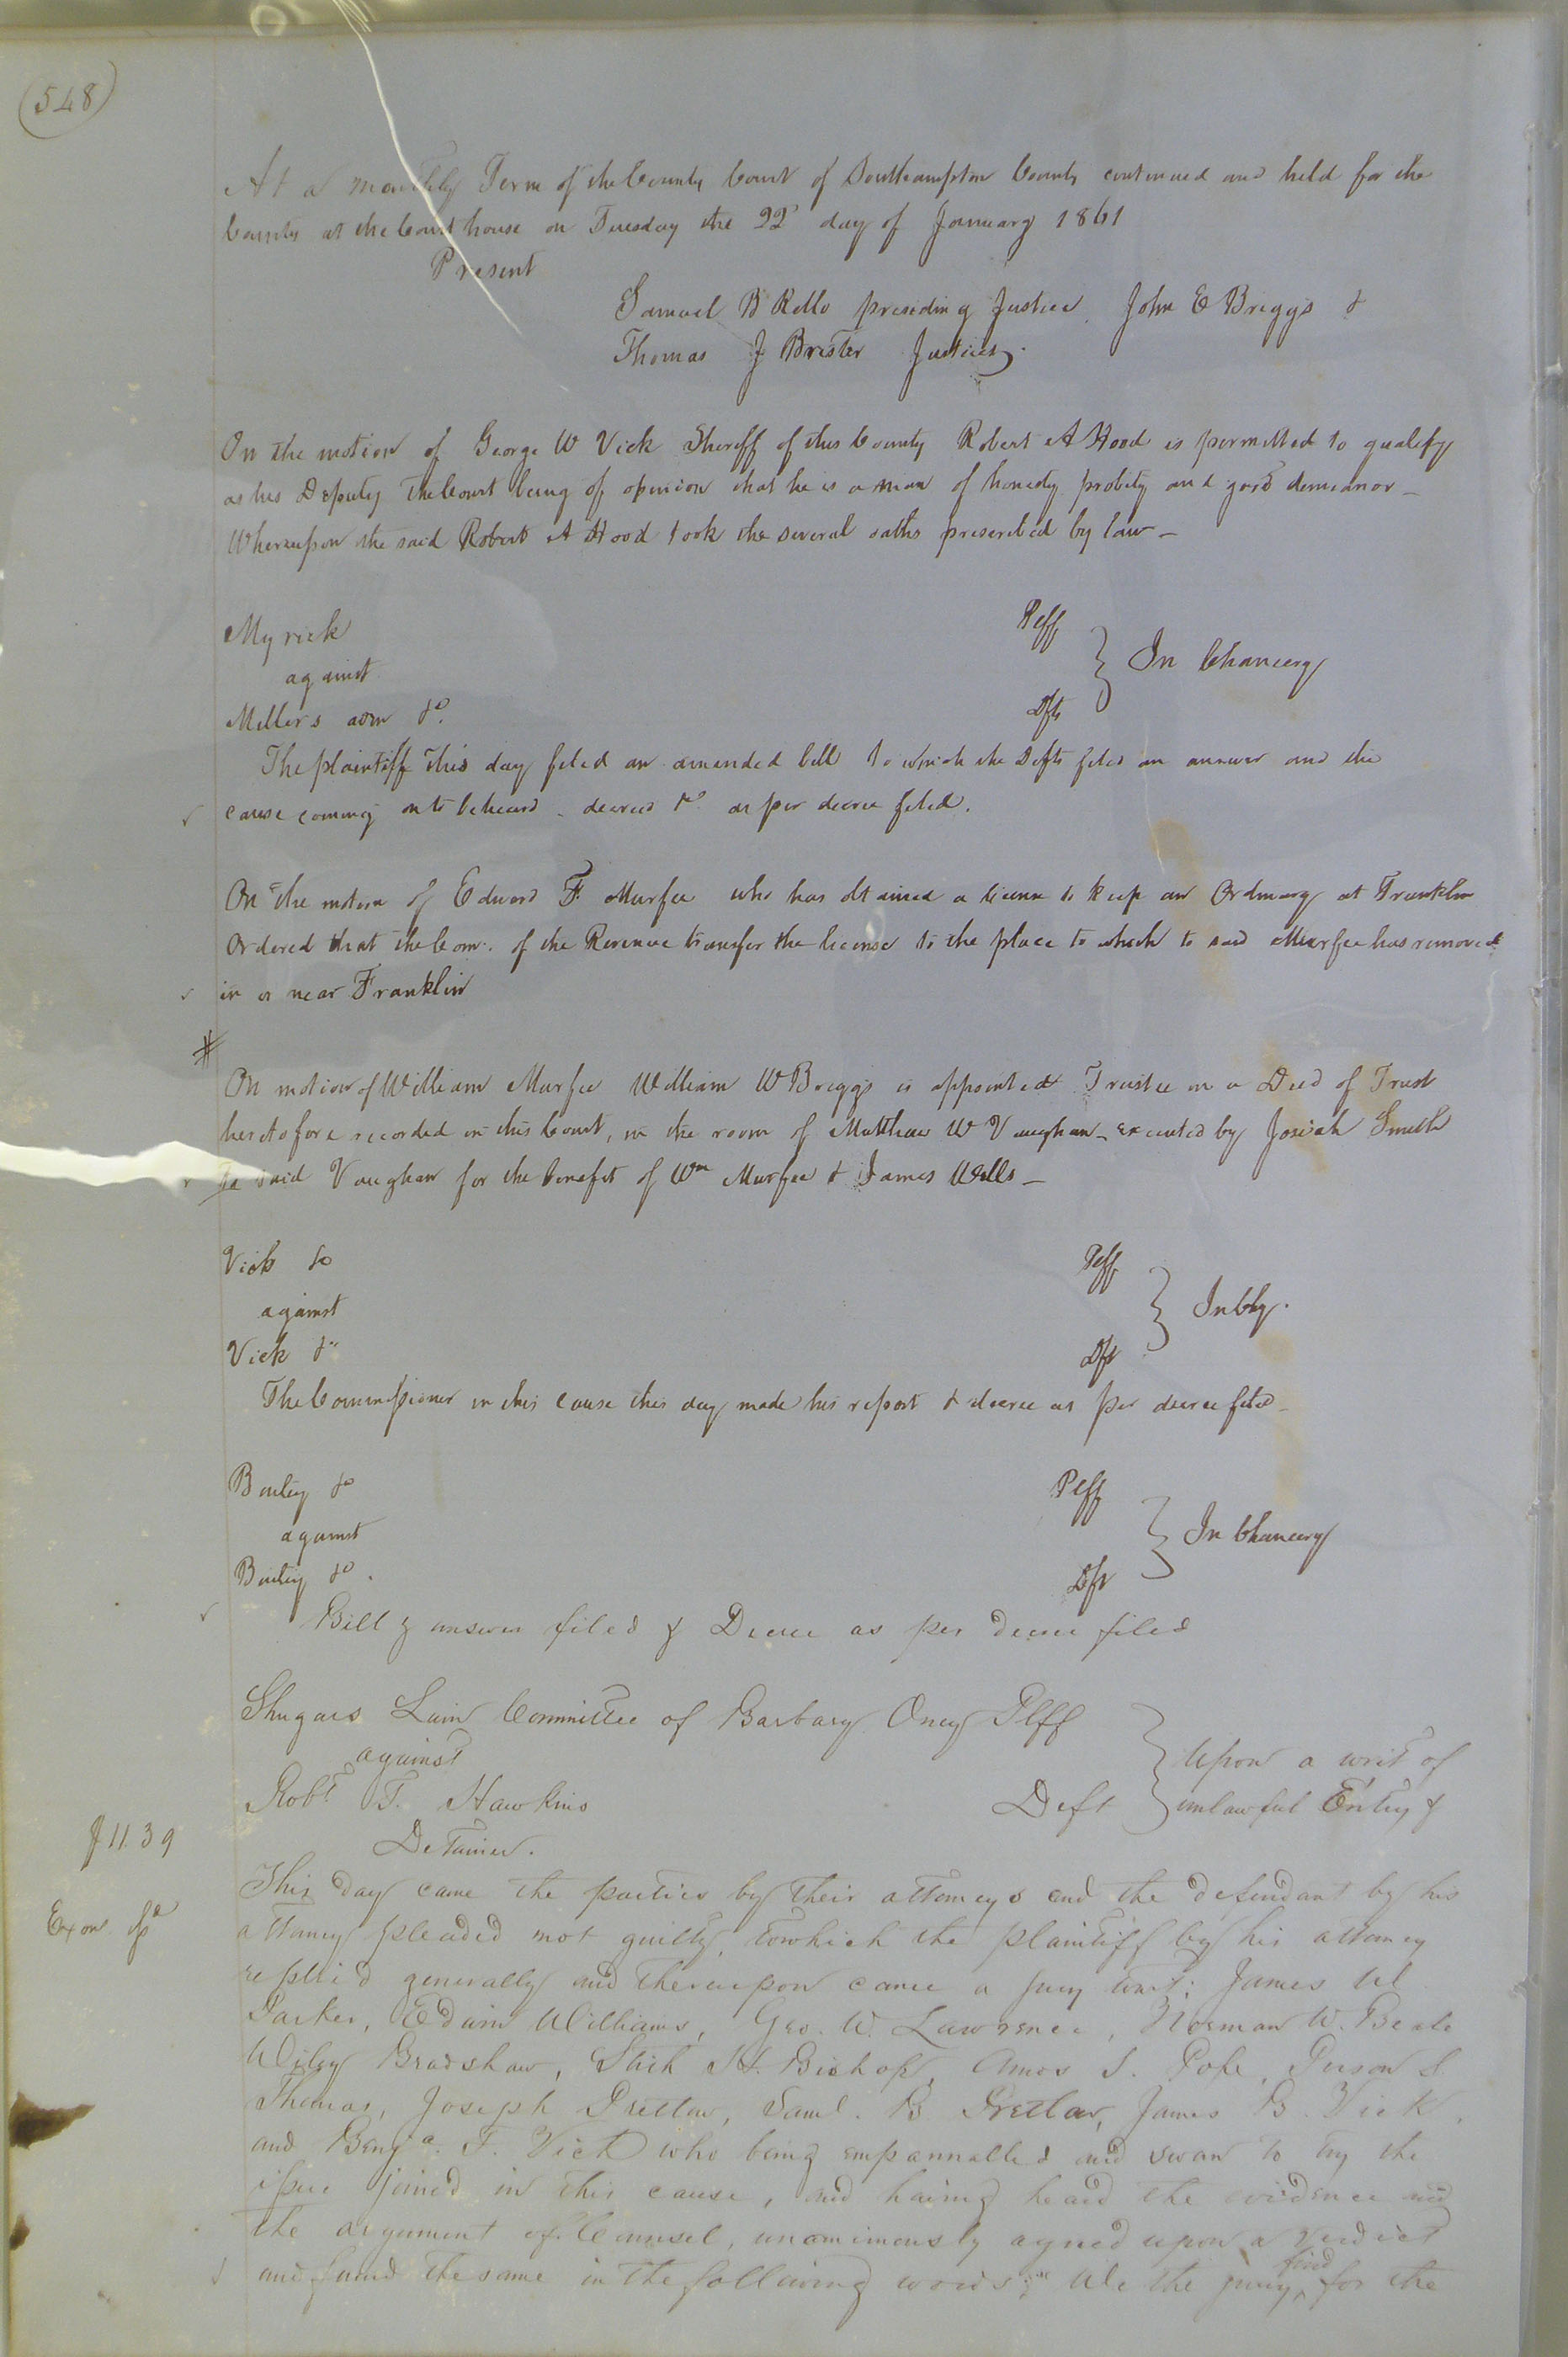 (548)
At a monthly Term of the County Court of Southampton County continued and held for the
County at the Court house on Tuesday the 22d day of January 1861
Present
Samuel B Kello presiding Justice John E Briggs &
Thomas J Brister Justices.
On the motion of George W Vick Sheriff of this County Robert A Hood is permitted to qualify
as his Deputy The Court being of opinion that he is a man of honesty probity and good demeanor _
Whereupon the said Robert A Hood took the several oaths prescribed by law _
Myrick Plff
against } In Chancery
Millers adm &c. Dfts
The plaintiff this day filed an amended bill to which the Defts filed an answer and the
cause coming on to be heard . decreed &c as per decree filed.
On the motion of Edward F. Murfee who has obtained a license to keep an Ordinary at Franklin
Ordered that the Com. of the Revenue transfer the license to the place to which to said Murfee has removed
in or near Franklin
#
On motion of William Murfee William W Briggs is appointed Trustee in a Deed of Trust
heretofore recorded in this Court, in the room of Matthew W Vaughan _ executed by Josiah Smith
to said Vaughan for the benefit of Wm Murfee & James Wells _
Vick &c Plff
against } In Chy.
Vick &c Dft
The Commissioner in this cause this day made his report & decree as per decree filed _
&c Plff
against } In Chancery
&c . Dft
Bill & answer filed & Decree as per decree filed
Shugars Lain Committee of Barbary Oney Plff
against } Upon a writ of
Robt T. Hawkins Deft unlawful Entry &
Detainer.
$11.39
This day came the parties by their attorneys and the defendant by his
Exon
attorney pleaded not guilty, to which the plaintiff by his attorney
replied generally and thereupon came a jury to wit; James W
Parker, Edwin Williams, Geo. W. Lawrence, Norman W. Beale
Wiley Bradshaw, Stith H. Bishop, Amos S. Pope, Person S.
Thomas, Joseph Pretlow, Saml. B Pretlow, James B. Vick,
and Benja. F. Vick who being empannalled and sworn to try the
issue joined in this cause, and having heard the evidence and
the argument of Counsel, unanimously agreed upon a verdict
and found the same in the following words; "We the jury ^find for the